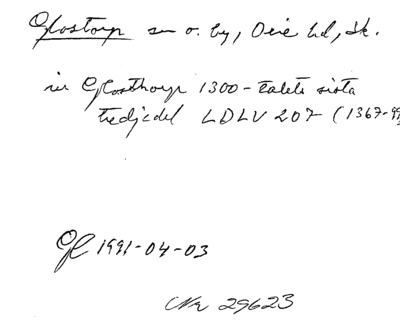 Glostorp sn o. by, Oxie hd, Sk.
in Glosthorp 1300-talets sista
tredjedel LDLV 207 (1367-99)
GL 1991-04-03
Nr 29623